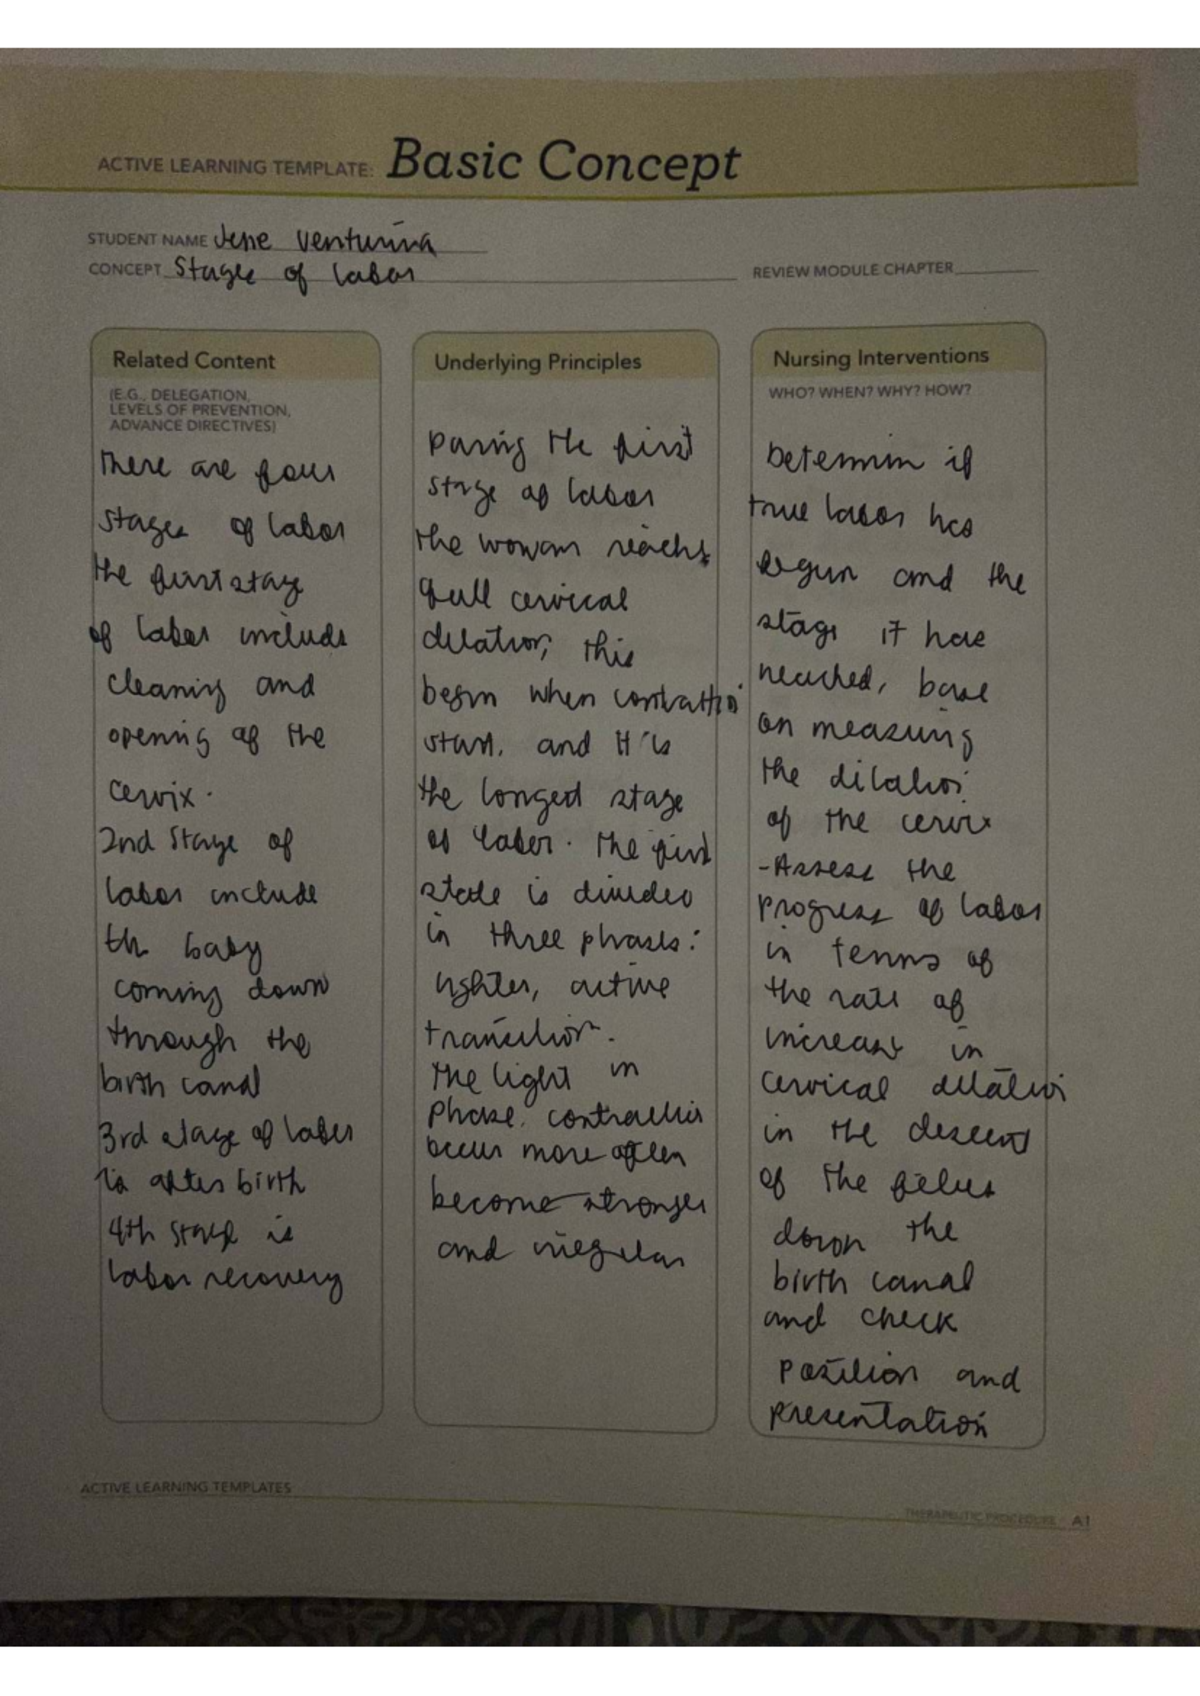 ACTIVE LEARNING TEMPLATE: Basic Concept
STUDENT NAME Venturina
CONCEPT Stage of labor
REVIEW MODULE CHAPTER
Related Content
(E.G., DELEGATION,
LEVELS OF PREVENTION,
ADVANCE DIRECTIVES)
There are four
stages of labor
the first stage
of labor include
cleaning and
opening of the
cervix.
2nd Stage of
labor include
th baby
coming down
through the
birth canal
3rd stage of labor
is after birth
4th stage is
labor recovery
Underlying Principles
During the first
stage of labor
the woman reachs
full cervical
dilation, this
begin when
start. and it's
the longest stage
of labor. The first
state is divided
in three phases:
active
transition.
The light in
phase. contraction
occur more often
become stronger
and irregular
Nursing Interventions
WHO? WHEN? WHY? HOW?
Determin if
true labor has
begun and the
stage it have
reached, base
on measuring
the dilation
of the cervix
-Assess the
progress of labor
in terms of
the rate of
increase in
cervical dilation
in the descent
of the fetus
down the
birth canal
and check
position and
presentation
ACTIVE LEARNING TEMPLATES
THERAPEUTIC PROCEDURE A1